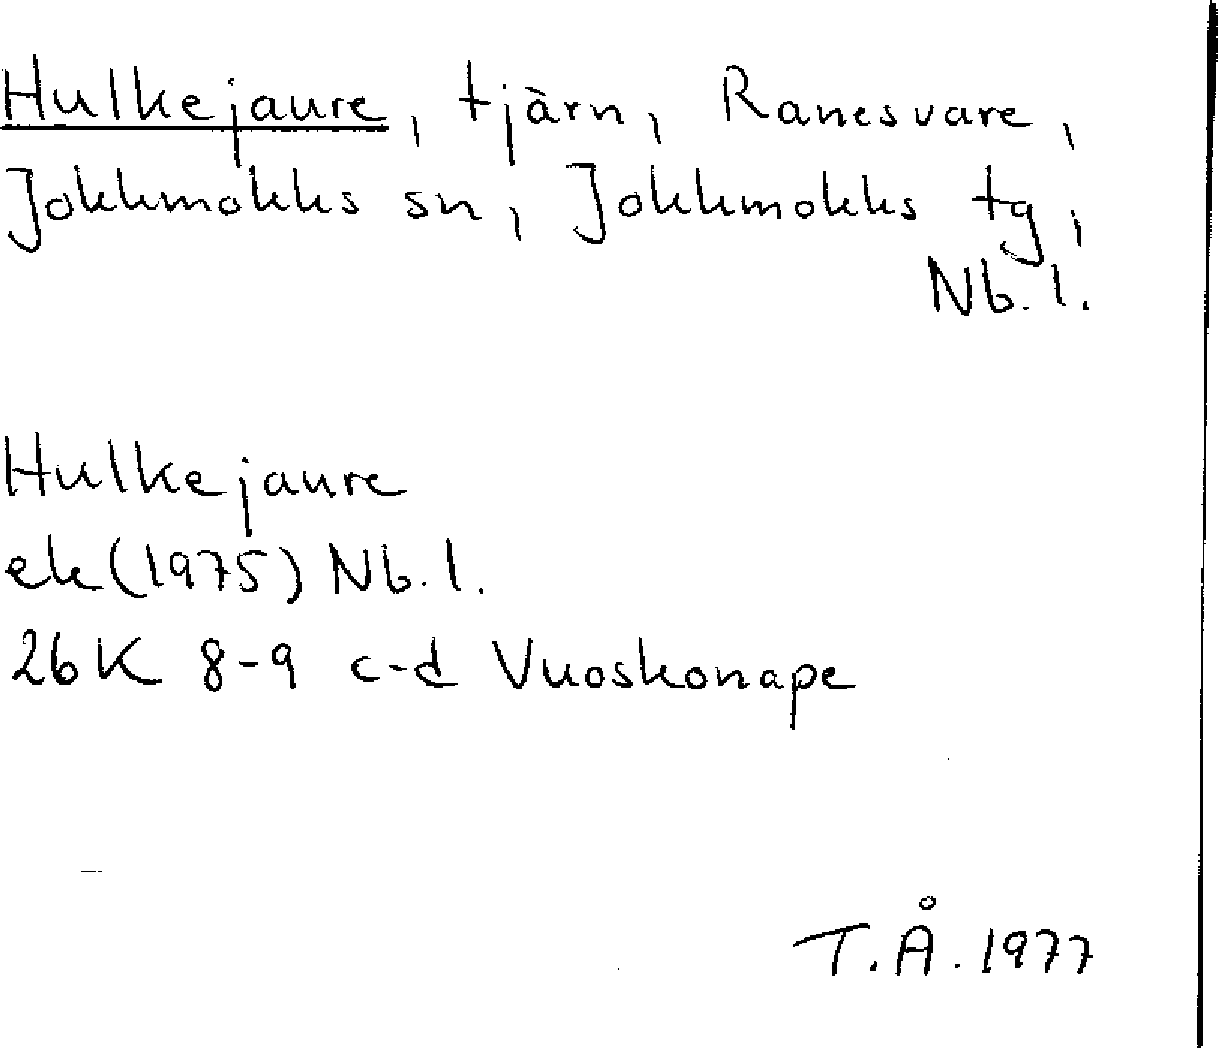 Hulkejaure, tjärn, Ranesvare,
Jokkmokks sn, Jokkmokks tg,
Nb. l.
Hulkejaure
ek (1975) Nb. l.
26 K 8-9 c-d Vuoskonape
T. Å. 1977